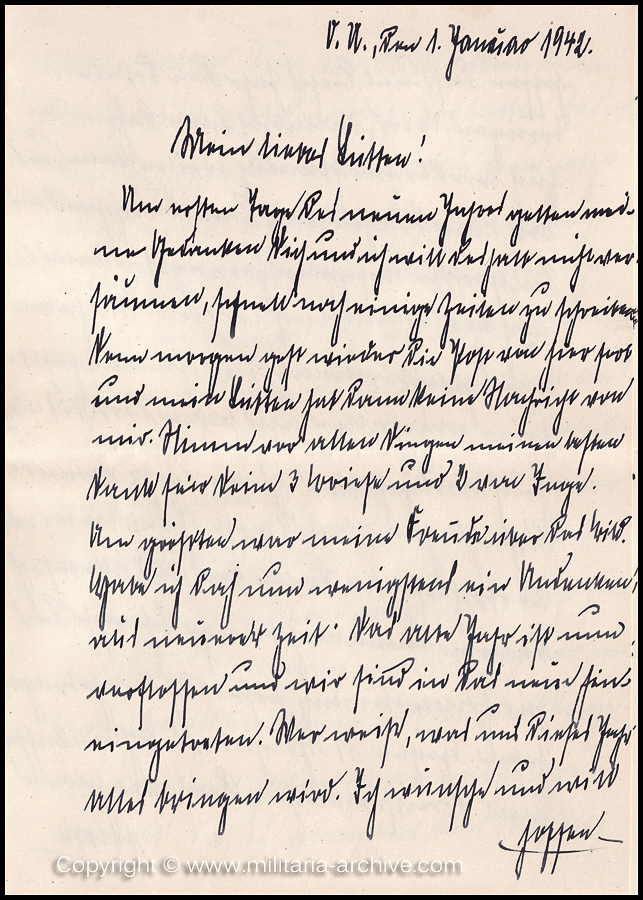 O.U., den 1. Januar 1942.
Mein liebes Lütten!
Am ersten Tage des neuen Jahres gelten mei-
ne Gedanken Dich und ich will deshalb nicht ver-
säumen, schnell noch einige Zeilen zu schreiben,
denn morgen geht wieder die Post von hier fort
und mein Lütten hat dann keine Nachricht von
mir. Nimm vor allen Dingen meinen besten
Dank für Deine 3 Briefe und 2 von Inge.
Am größten war meine Freude über das Bild.
Habe ich doch nun wenigstens ein Andenken
aus neuerer Zeit. Das alte Jahr ist nun
verflossen und wir sind in das neue hin-
eingetreten. Wer weiß, was uns dieses Jahr
alles bringen wird. Ich wünsche und will
hoffen
Copyright © www.militaria-archive.com